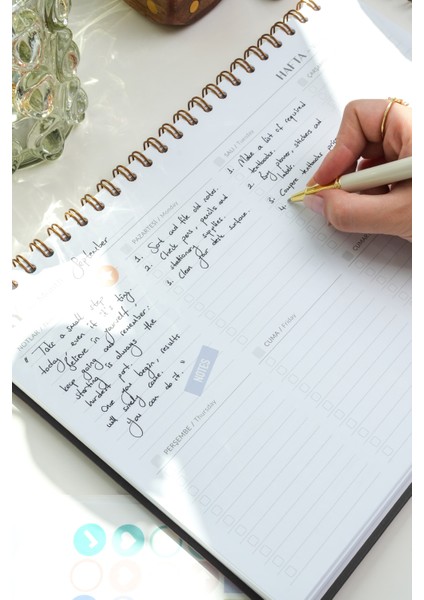 HAFTA
September
PAZARTESİ / Monday
1. Sort and file old notes.
2. Check pens, pencils and
stationary supplies.
3. Clean your desk surface.
SALI / Tuesday
1. Make a list of required
textbooks.
2. Buy planner, stickers and
3. Compare textbooks
4.
NOTLAR /
" Take a small step
today, even if it's tiny.
Believe in yourself,
keep going and remember:
starting is always the
hardest part.
Once you begin, results
will surely come.
You can do it. "
NOTES
PERŞEMBE / Thursday
CUMA / Friday